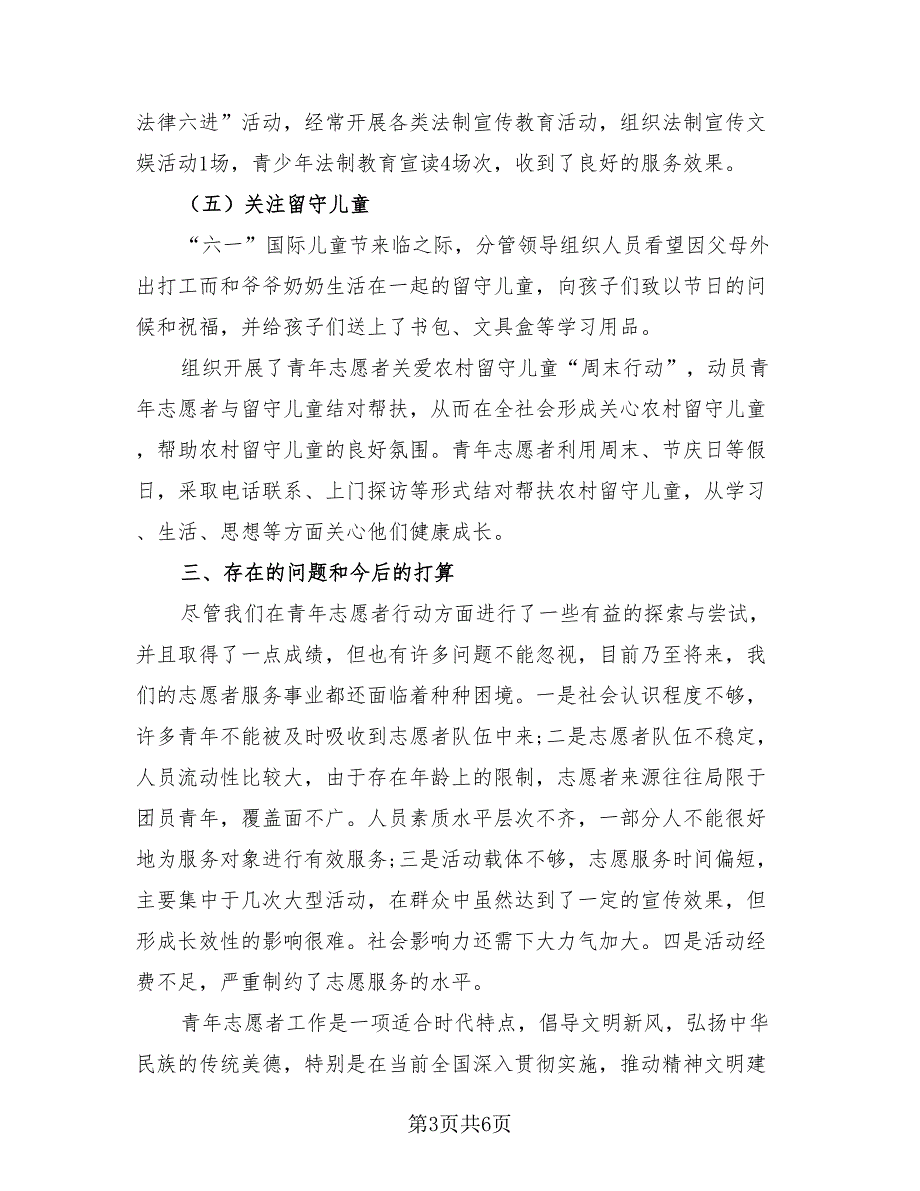 法律六进”活动，经常开展各类法制宣传教育活动，组织法制宣传文
娱活动1场，青少年法制教育宣读4场次，收到了良好的服务效果。
（五）关注留守儿童
“六一”国际儿童节来临之际，分管领导组织人员看望因父母外
出打工而和爷爷奶奶生活在一起的留守儿童，向孩子们致以节日的问
候和祝福，并给孩子们送上了书包、文具盒等学习用品。
组织开展了青年志愿者关爱农村留守儿童“周末行动”，动员青
年志愿者与留守儿童结对帮扶，从而在全社会形成关心农村留守儿童
，帮助农村留守儿童的良好氛围。青年志愿者利用周末、节庆日等假
日，采取电话联系、上门探访等形式结对帮扶农村留守儿童，从学习
、生活、思想等方面关心他们健康成长。
三、存在的问题和今后的打算
尽管我们在青年志愿者行动方面进行了一些有益的探索与尝试，
并且取得了一点成绩，但也有许多问题不能忽视，目前乃至将来，我
们的志愿者服务事业都还面临着种种困境。一是社会认识程度不够，
许多青年不能被及时吸收到志愿者队伍中来;二是志愿者队伍不稳定，
人员流动性比较大，由于存在年龄上的限制，志愿者来源往往局限于
团员青年，覆盖面不广。人员素质水平层次不齐，一部分人不能很好
地为服务对象进行有效服务;三是活动载体不够，志愿服务时间偏短，
主要集中于几次大型活动，在群众中虽然达到了一定的宣传效果，但
形成长效性的影响很难。社会影响力还需下大力气加大。四是活动经
费不足，严重制约了志愿服务的水平。
青年志愿者工作是一项适合时代特点，倡导文明新风，弘扬中华
民族的传统美德，特别是在当前全国深入贯彻实施，推动精神文明建
第3页共6页